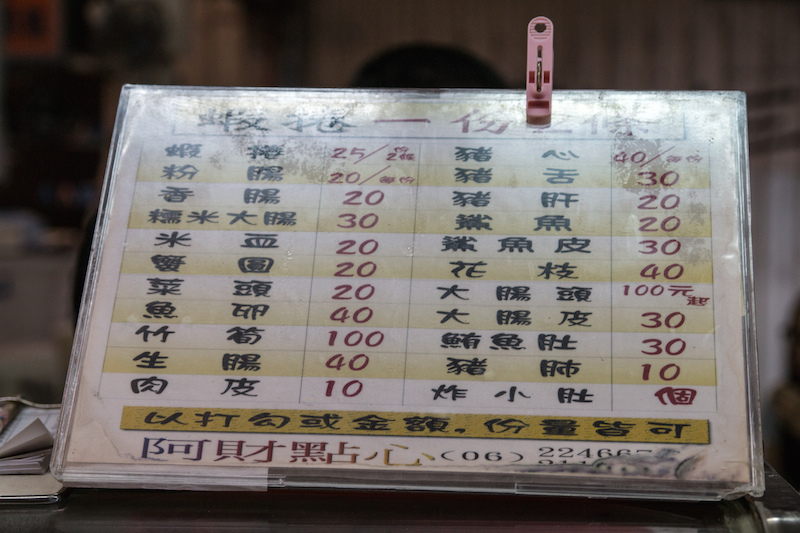 蝦捲一份二條
蝦捲 25/2條 豬心 40/每份
粉腸 20/每份 豬舌 30
香腸 20 豬肝 20
糯米大腸 30 鯊魚 20
米血 20 鯊魚皮 30
蟹圓 20 花枝 40
菜頭 20 大腸頭 100元起
魚卵 40 大腸皮 30
竹筍 100 鮪魚肚 30
生腸 40 豬肺 10
肉皮 10 炸小肚 個
以打勾或金額,份量皆可
阿財點心(06) 224667